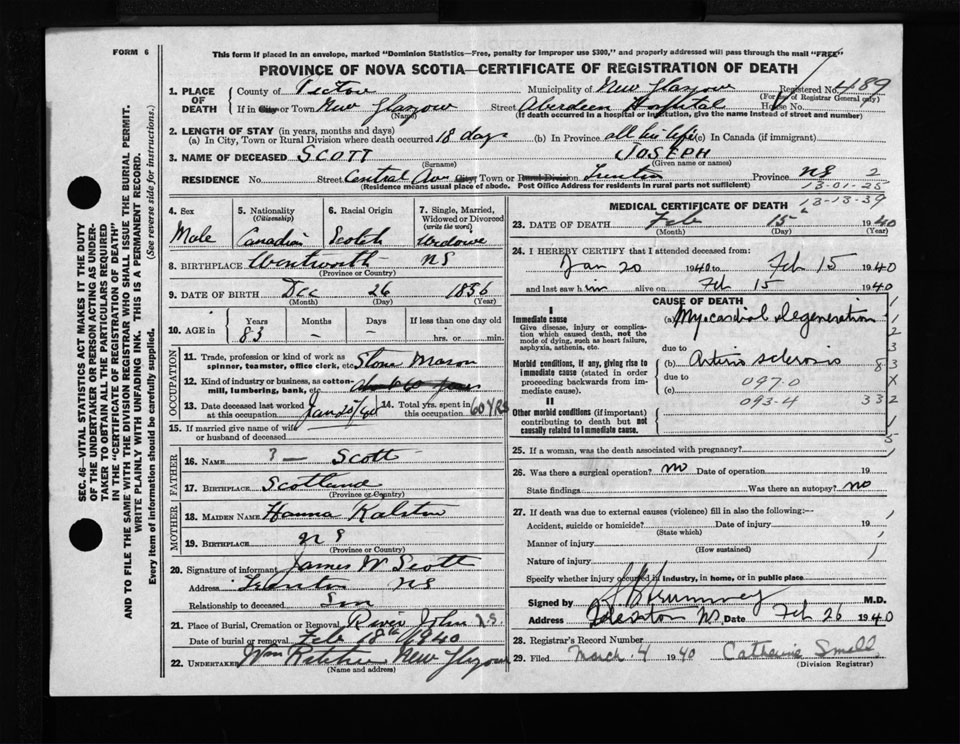 FORM 6
This form if placed in an envelope, marked "Dominion Statistics—Free, penalty for improper use $300," and properly addressed will pass through the mail "FREE"
PROVINCE OF NOVA SCOTIA—CERTIFICATE OF REGISTRATION OF DEATH
SEC. 46—VITAL STATISTICS ACT MAKES IT THE DUTY
OF THE UNDERTAKER OR PERSON ACTING AS UNDERTAKER TO OBTAIN ALL THE PARTICULARS REQUIRED
IN THE "CERTIFICATE OF REGISTRATION OF DEATH"
AND TO FILE THE SAME WITH THE DIVISION REGISTRAR WHO SHALL ISSUE THE BURIAL PERMIT.
WRITE PLAINLY WITH UNFADING INK. THIS IS A PERMANENT RECORD.
Every item of information should be carefully supplied. (See reverse side for instructions.)
1. PLACE OF DEATH
County of Pictou Municipality of New Glasgow Registered No. 489
(For use of Registrar General only)
If in City or Town New Glasgow (Name) Street Aberdeen Hospital House No.
(If death occurred in a hospital or institution, give the name instead of street and number)
2. LENGTH OF STAY (in years, months and days)
(a) In City, Town or Rural Division where death occurred 18 days (b) In Province all his life (c) In Canada (if immigrant)
3. NAME OF DECEASED SCOTT (Surname) JOSEPH (Given name or names)
RESIDENCE No. Street Central Ave City, Town or Rural Division Trenton Province NS 2
(Residence means usual place of abode. Post Office Address for residents in rural parts not sufficient)
13-01-25
13-13-39
4. Sex Male
5. Nationality (Citizenship) Canadian
6. Racial Origin Scotch
7. Single, Married, Widowed or Divorced (write the word) Widower
8. BIRTHPLACE Wentworth NS
(Province or Country)
9. DATE OF BIRTH Dec 26 1856
(Month) (Day) (Year)
10. AGE in Years 83 Months — Days — If less than one day old hrs. or min.
OCCUPATION
11. Trade, profession or kind of work as spinner, teamster, office clerk, etc. Stone Mason
12. Kind of industry or business, as cotton-mill, lumbering, bank, etc.
13. Date deceased last worked at this occupation Jan 20/40 14. Total yrs. spent in this occupation 60 YRS
15. If married give name of wife or husband of deceased
FATHER
16. Name ? — Scott
17. Birthplace Scotland
(Province or Country)
MOTHER
18. Maiden Name Hanna Ralston
19. Birthplace NS
(Province or Country)
20. Signature of informant James W Scott
Address Trenton NS
Relationship to deceased Son
21. Place of Burial, Cremation or Removal River John N.S.
Date of burial or removal Feb 18th 1940
22. Undertaker New Glasgow
(Name and address)
MEDICAL CERTIFICATE OF DEATH
23. DATE OF DEATH Feb 15 1940
(Month) (Day) (Year)
24. I HEREBY CERTIFY that I attended deceased from:
Jan 20 1940 to Feb 15 1940
and last saw him alive on Feb 15 1940
CAUSE OF DEATH
I
Immediate cause
Give disease, injury or complication which caused death, not the mode of dying, such as heart failure, asphyxia, asthenia, etc.
(a) Myocardial degeneration
due to
Morbid conditions, if any, giving rise to immediate cause (stated in order proceeding backwards from immediate cause).
(b) Arterio sclerosis
due to 097.0
(c) 093-4 332
II
Other morbid conditions (if important) contributing to death but not causally related to immediate cause.
25. If a woman, was the death associated with pregnancy?
26. Was there a surgical operation? no Date of operation 19
State findings Was there an autopsy? no
27. If death was due to external causes (violence) fill in also the following:—
Accident, suicide or homicide? Date of injury 19
(State which)
Manner of injury
(How sustained)
Nature of injury
Specify whether injury occurred in industry, in home, or in public place
Signed by M.D.
Address NS. Date Feb 26 1940
28. Registrar's Record Number
29. Filed March 4 1940 Catherine Small
(Division Registrar)